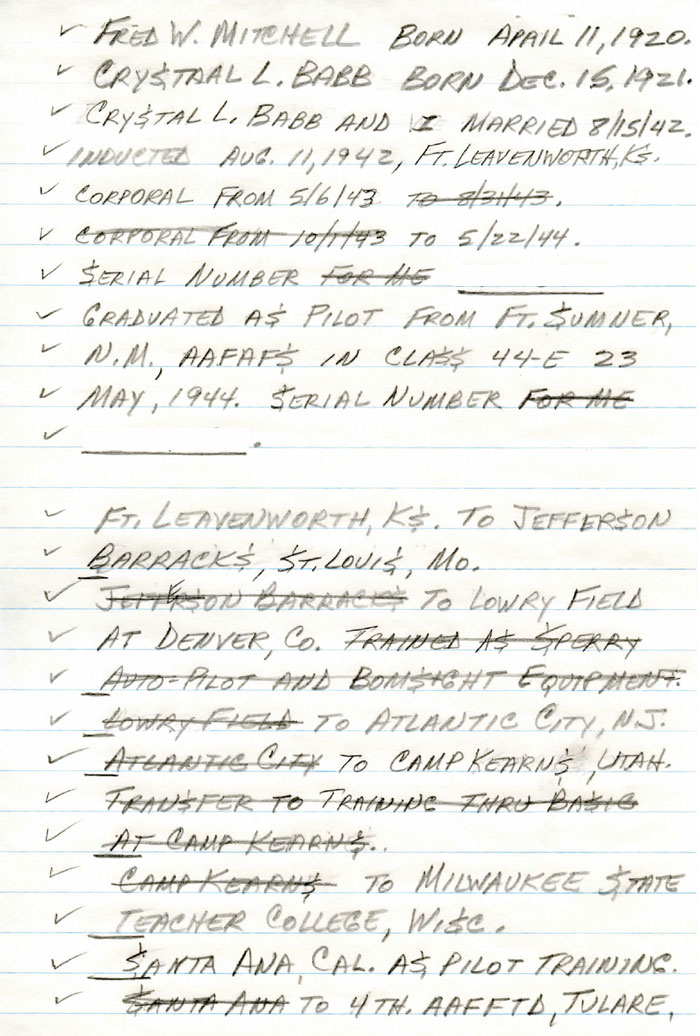 ✓ FRED W. MITCHELL BORN APRIL 11, 1920.
✓ CRYSTAAL L. BABB BORN DEC. 15, 1921.
✓ CRYSTAL L. BABB AND I MARRIED 8/15/42.
✓ INDUCTED AUG. 11, 1942, FT. LEAVENWORTH, KS.
✓ CORPORAL FROM 5/6/43 TO 8/31/43.
✓ CORPORAL FROM 10/1/43 TO 5/22/44.
✓ SERIAL NUMBER FOR ME
✓ GRADUATED AS PILOT FROM FT. SUMNER,
✓ N.M., AAFAFS IN CLASS 44-E 23
✓ MAY, 1944. SERIAL NUMBER FOR ME
✓ .
✓ FT. LEAVENWORTH, KS. TO JEFFERSON
✓ BARRACKS, ST. LOUIS, MO.
✓ JEFFERSON BARRACKS TO LOWRY FIELD
✓ AT DENVER, CO. TRAINED AS SPERRY
✓ AUTO-PILOT AND BOMSIGHT EQUIPMENT.
✓ LOWRY FIELD TO ATLANTIC CITY, N.J.
✓ ATLANTIC CITY TO CAMP KEARNS, UTAH.
✓ TRANSFER TO TRAINING THRU BASIC
✓ AT CAMP KEARNS..
✓ CAMP KEARNS TO MILWAUKEE STATE
✓ TEACHER COLLEGE, WISC.
✓ SANTA ANA, CAL. AS PILOT TRAINING.
✓ SANTA ANA TO 4TH. AAFFTD, TULARE,